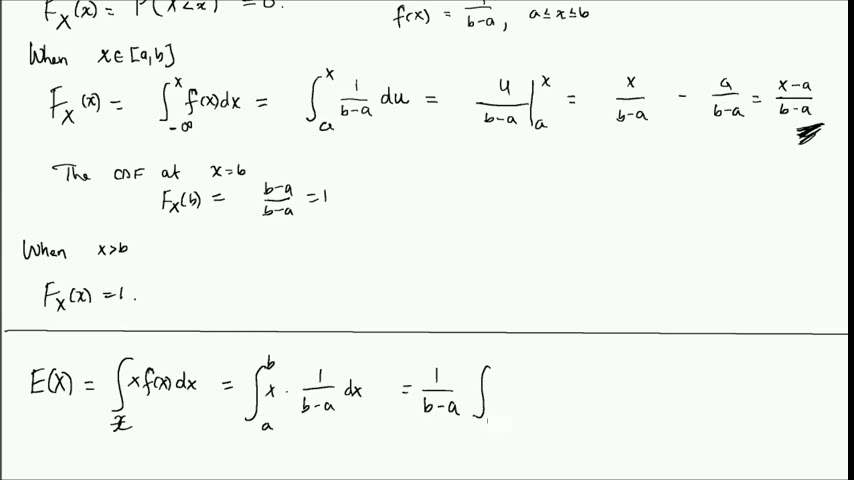 F_X(x) = P(X<x) = 0.
f(x) = 1/(b-a), a≤x≤b
When x∈[a,b]
F_X(x) = ∫_{-∞}^{x} f(x)dx = ∫_{a}^{x} 1/(b-a) du = u/(b-a) |_{a}^{x} = x/(b-a) - a/(b-a) = (x-a)/(b-a)
The CDF at x=b
F_X(b) = (b-a)/(b-a) = 1
When x>b
F_X(x) = 1.
E(X) = ∫_{x} x f(x) dx = ∫_{a}^{b} x · 1/(b-a) dx = 1/(b-a) ∫